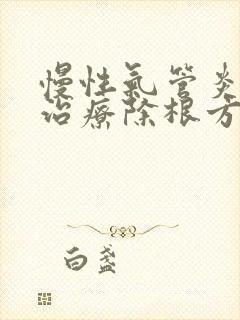 慢性氣管炎
治療除根方
白盞